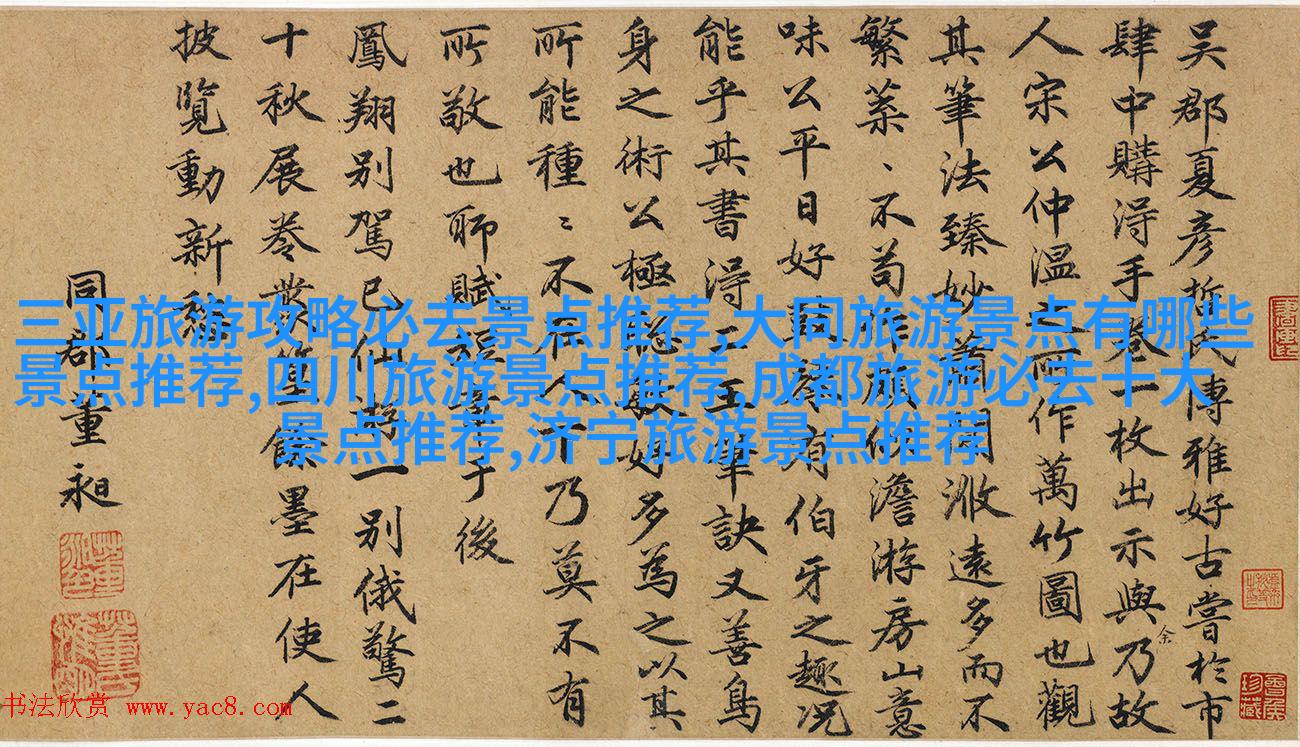 三亚旅游攻略必去景点推荐,大同旅游景点有哪些
景点推荐,四川旅游景点推荐,成都旅游必去十大
景点推荐,济宁旅游景点推荐
吴郡夏彦哲氏博雅好古嘗於市
肆中購得手卷一枚出示與余乃故
人宋公仲溫之所作萬竹圖也觀
其筆法臻妙蕭閒 遠多而不
繁 不苟作 澹游房山意
味公平日好鼓琴有伯牙之趣况
能乎其書得二王筆訣又善烏
身之術公極聰敏好多為之以其
所能種〻不在人下乃莫不有
所敬也聊賦短章于後
鳳翔別駕已仙 一别俄驚二
十秋展卷 餘墨在使人
披覽動新
同郡董昶
书法欣赏 www.yac8.com